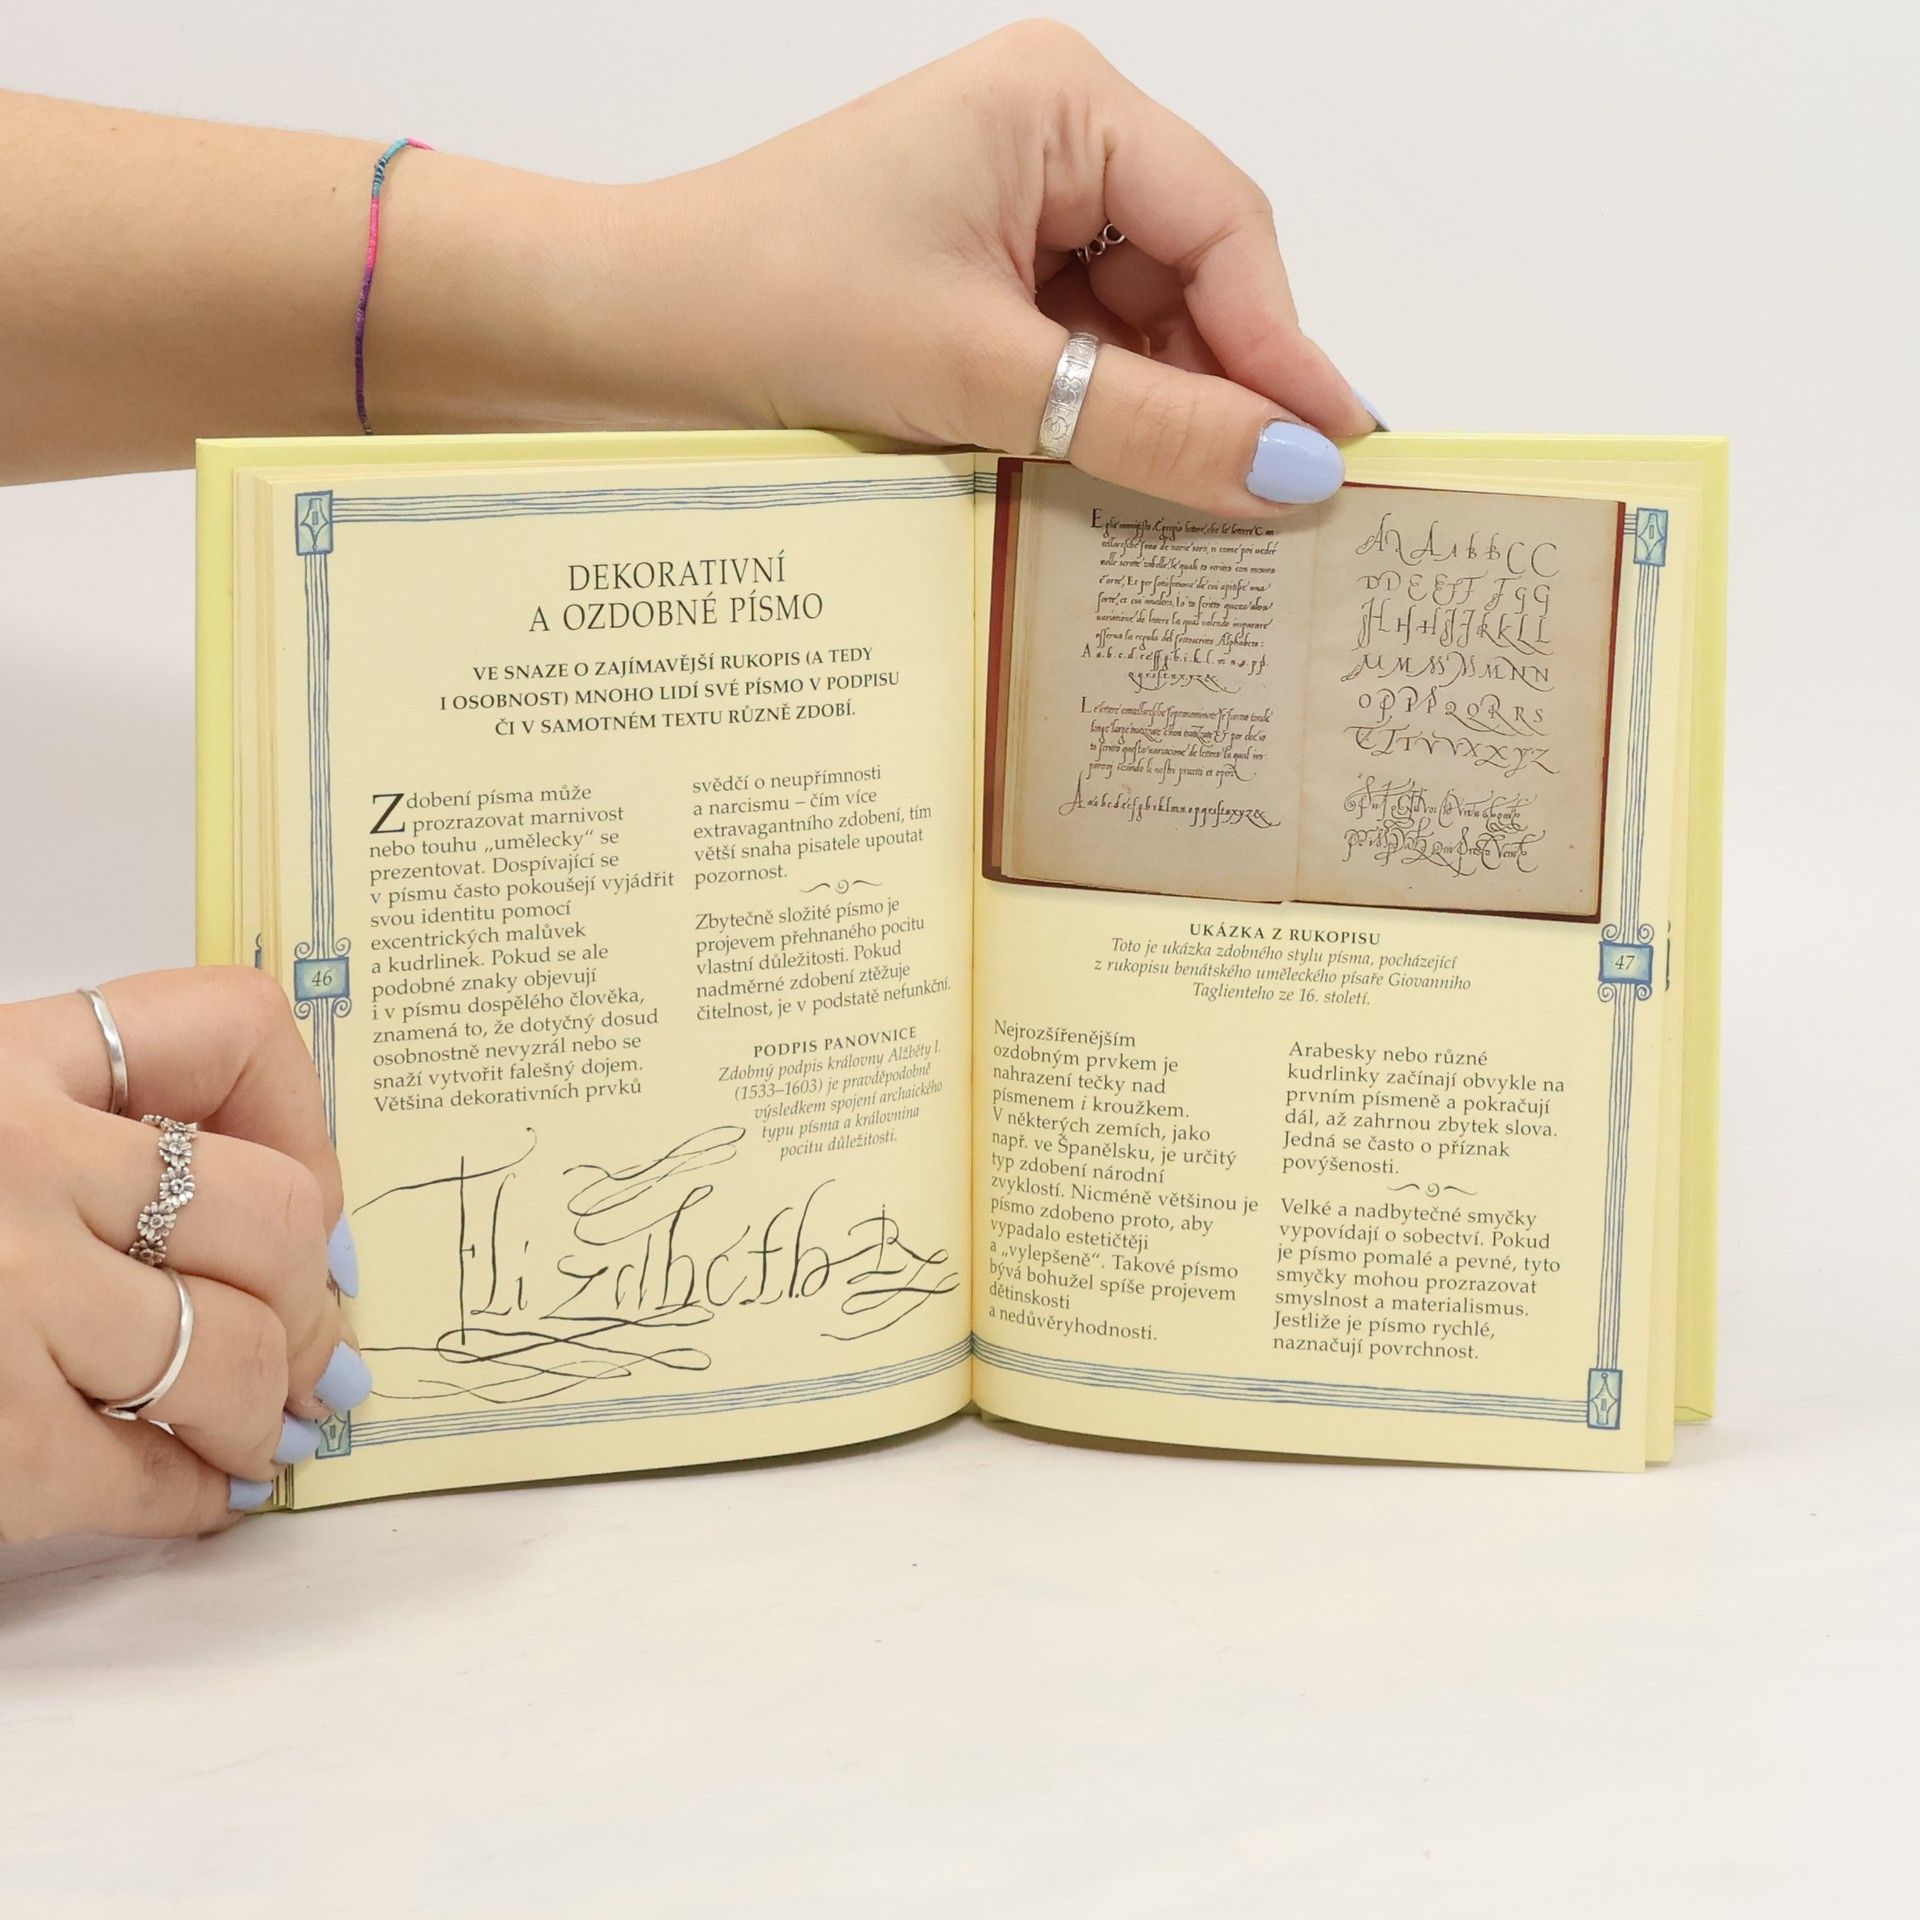 DEKORATIVNÍ
A OZDOBNÉ PÍSMO
VE SNAZE O ZAJÍMAVĚJŠÍ RUKOPIS (A TEDY
I OSOBNOST) MNOHO LIDÍ SVÉ PÍSMO V PODPISU
ČI V SAMOTNÉM TEXTU RŮZNĚ ZDOBÍ.
Zdobení písma může
prozrazovat marnivost
nebo touhu „umělecky“ se
prezentovat. Dospívající se
v písmu často pokoušejí vyjádřit
svou identitu pomocí
excentrických malůvek
a kudrlinek. Pokud se ale
podobné znaky objevují
i v písmu dospělého člověka,
znamená to, že dotyčný dosud
osobnostně nevyzrál nebo se
snaží vytvořit falešný dojem.
Většina dekorativních prvků
svědčí o neupřímnosti
a narcismu – čím více
extravagantního zdobení, tím
větší snaha pisatele upoutat
pozornost.
Zbytečně složité písmo je
projevem přehnaného pocitu
vlastní důležitosti. Pokud
nadměrné zdobení ztěžuje
čitelnost, je v podstatě nefunkční.
PODPIS PANOVNICE
Zdobný podpis královny Alžběty I.
(1533–1603) je pravděpodobně
výsledkem spojení archaického
typu písma a královnina
pocitu důležitosti.
Elizabeth R
46
UKÁZKA Z RUKOPISU
Toto je ukázka zdobného stylu písma, pocházející
z rukopisu benátského uměleckého písaře Giovanniho
Taglienteho ze 16. století.
Nejrozšířenějším
ozdobným prvkem je
nahrazení tečky nad
písmenem i kroužkem.
V některých zemích, jako
např. ve Španělsku, je určitý
typ zdobení národní
zvyklostí. Nicméně většinou je
písmo zdobeno proto, aby
vypadalo estetičtěji
a „vylepšeně“. Takové písmo
bývá bohužel spíše projevem
dětinskosti
a nedůvěryhodnosti.
Arabesky nebo různé
kudrlinky začínají obvykle na
prvním písmeně a pokračují
dál, až zahrnou zbytek slova.
Jedná se často o příznak
povýšenosti.
Velké a nadbytečné smyčky
vypovídají o sobectví. Pokud
je písmo pomalé a pevné, tyto
smyčky mohou prozrazovat
smyslnost a materialismus.
Jestliže je písmo rychlé,
naznačují povrchnost.
47